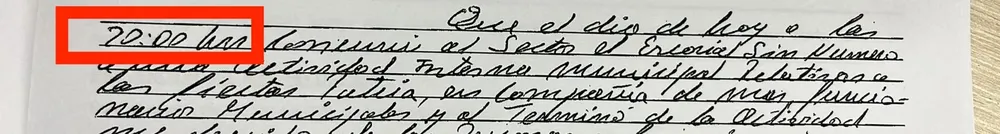 Que el dia de hoy a las
20:00 hrs Concurri al Sector el Escorial Sin Numero
a una Actividad Interna Municipal Relativas a
las Fiestas Patria, en Compañia de mas funcio-
narios Municipales y al Termino de la Actividad